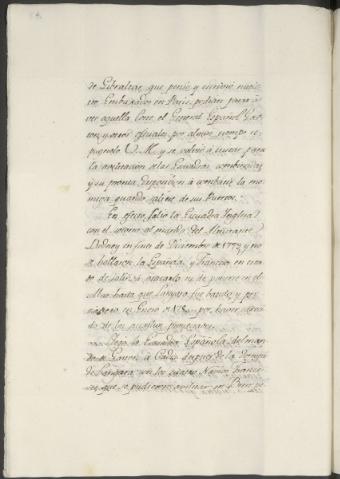 de Gibraltar, que pensó y escribió nues-
tro Embaxador en Paris, podian pasar à
ver aquella Corte el General Español Gas-
ton, y otros oficiales por algun tiempo re-
pugnolo V. M. y se volvió à instar para
la habilitacion de las Esquadras combinadas
y su pronta Expedicion à combatir la ene-
miga quando saliese de sus Puertos.
En efecto, salió la Esquadra Inglesa
con el socorro al mando del Almirante
Rodney en fines de Diciembre de 1779 y no
se hallaron la Española, y Francesa en esta-
do de salir à atacarla ni de ponerse en el
Mar hasta que Langara fue batido y pri-
sionero en Enero de 1780 por haver
de los auxilios
Llegó la Esquadra Española del man-
do de Gaston à Cadiz despues de la
de Langara con los quatro Navios France-
ses que se pudieron habilitar en Brest